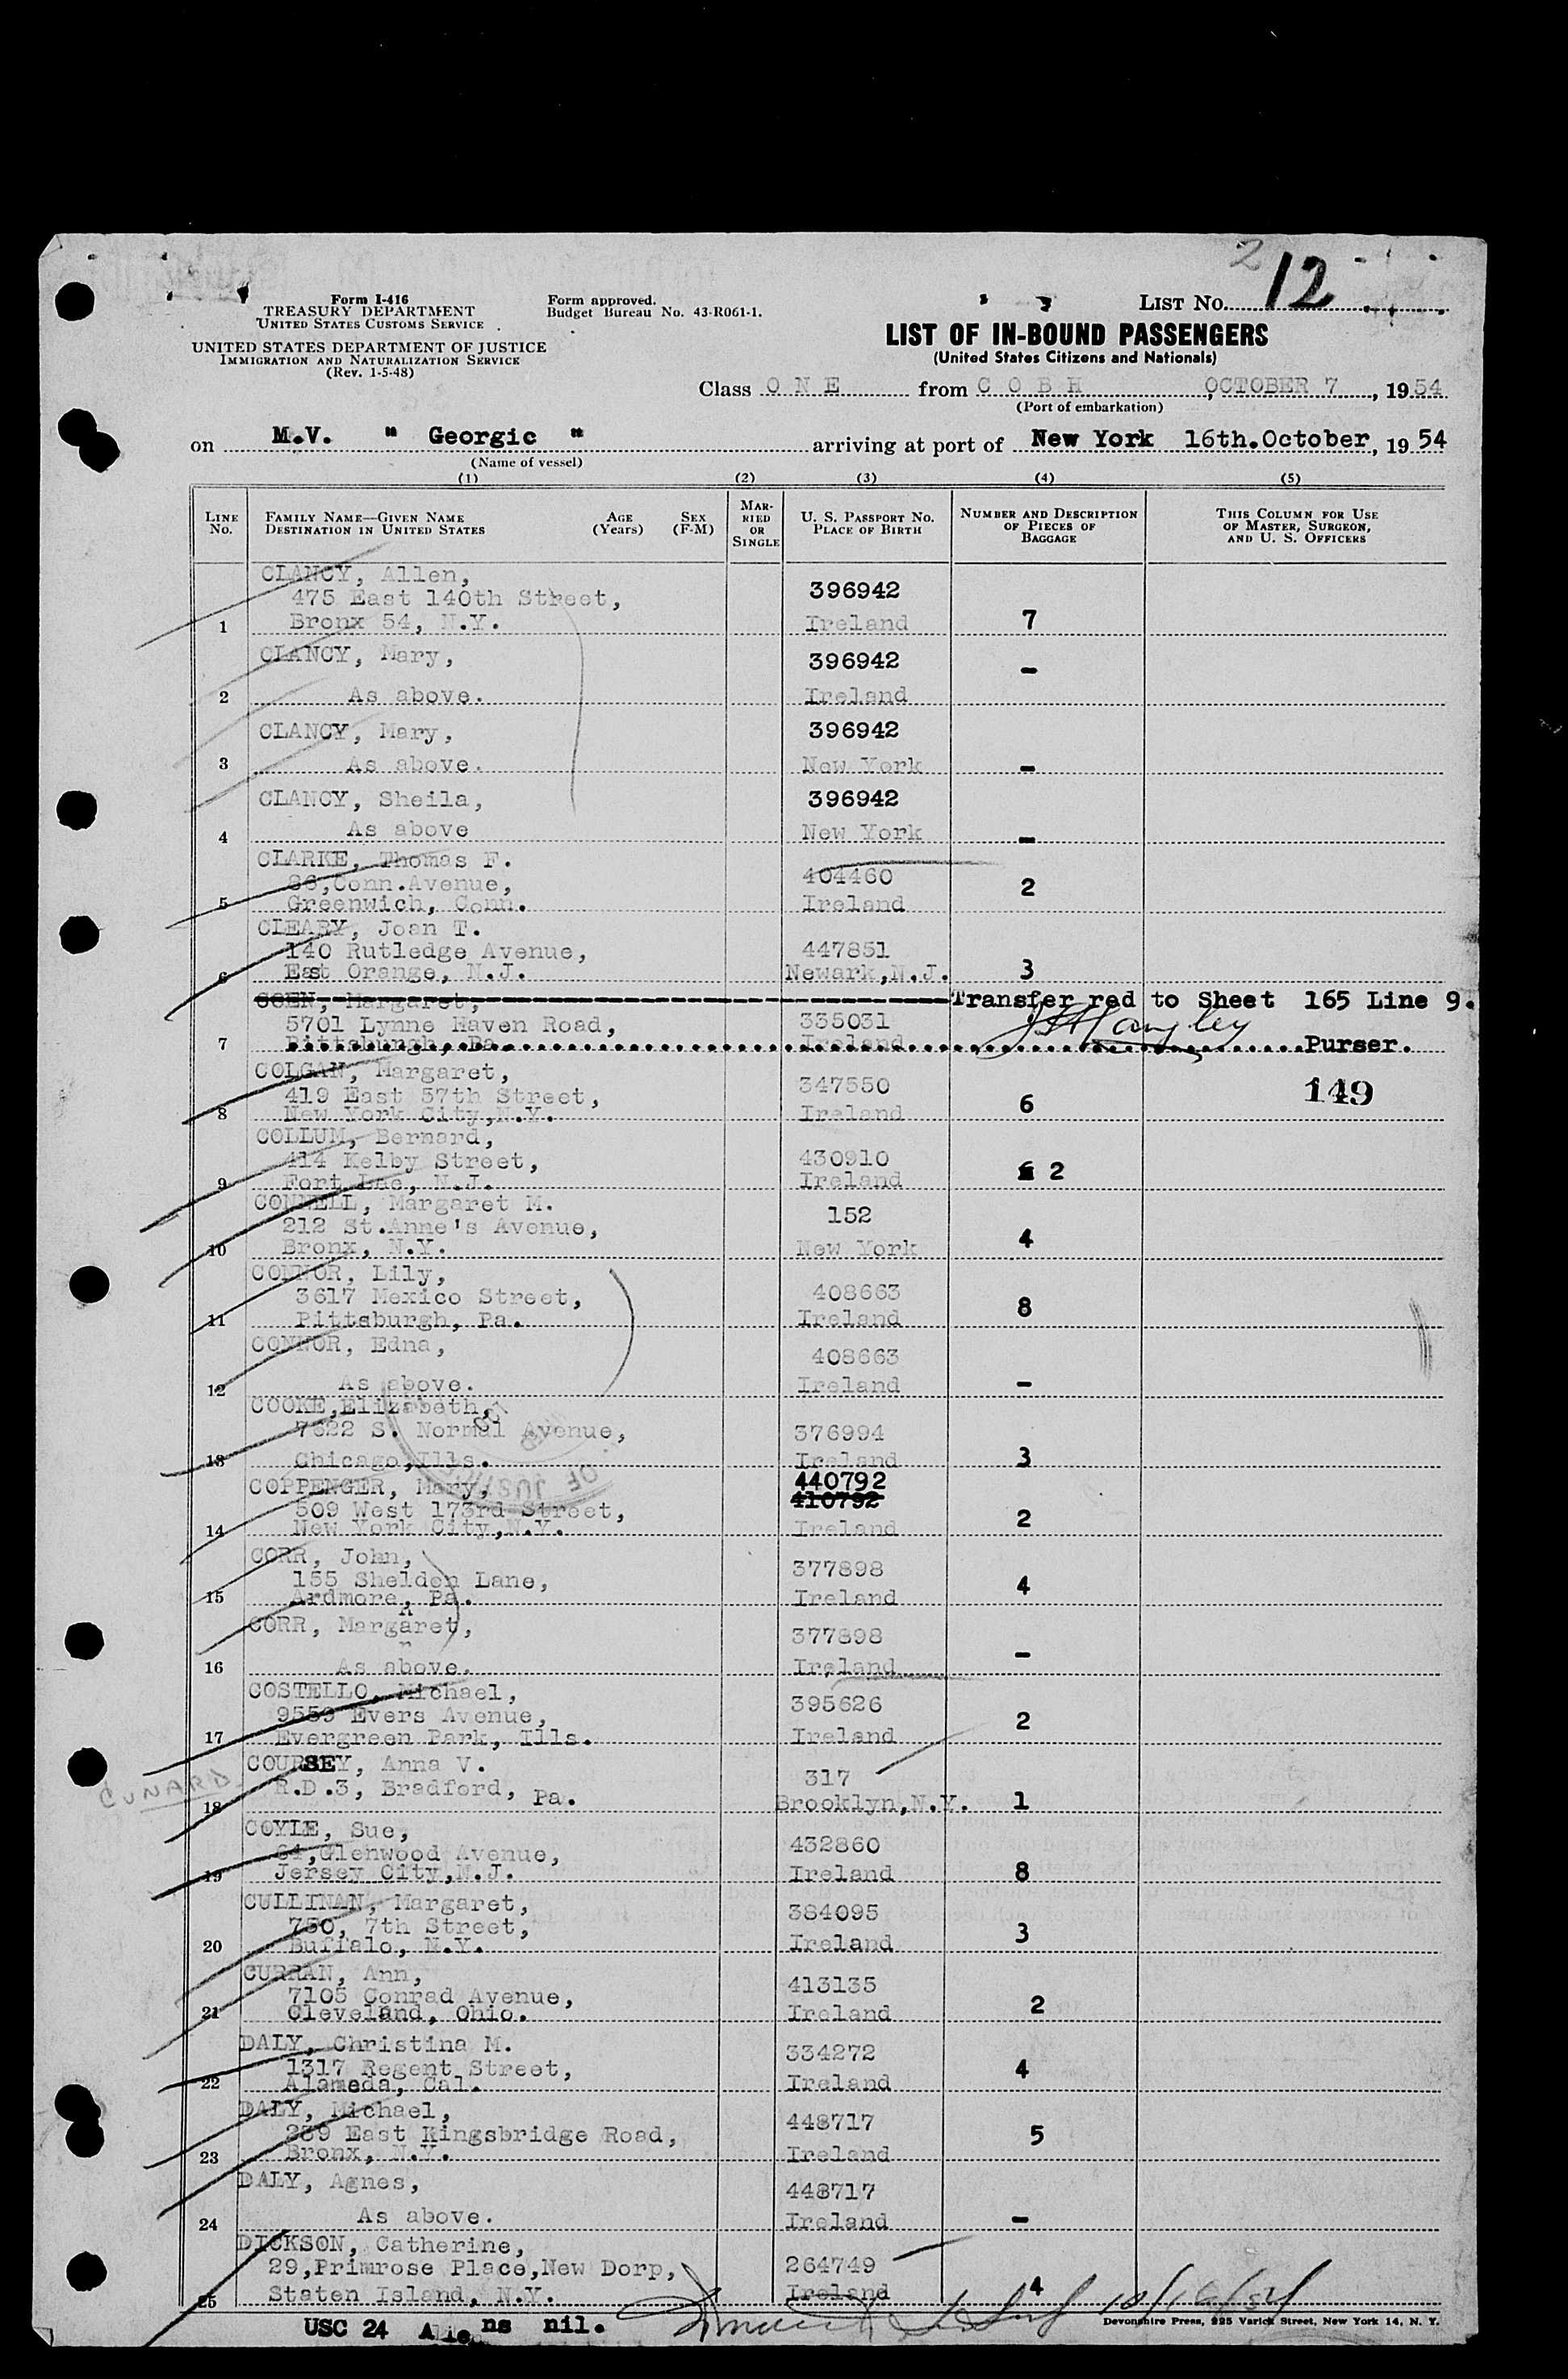 2
12
Form I-416
TREASURY DEPARTMENT
UNITED STATES CUSTOMS SERVICE
UNITED STATES DEPARTMENT OF JUSTICE
IMMIGRATION AND NATURALIZATION SERVICE
(Rev. 1-5-48)
Form approved.
Budget Bureau No. 43-R061-1.
LIST NO.
LIST OF IN-BOUND PASSENGERS
(United States Citizens and Nationals)
Class O N E from C O B H , OCTOBER 7 , 19 54
(Port of embarkation)
on M.V. " Georgic " arriving at port of New York 16th.October, 19 54
(Name of vessel)
(1) (2) (3) (4) (5)
LINE NO.
FAMILY NAME—GIVEN NAME
DESTINATION IN UNITED STATES
AGE (Years)
SEX (F-M)
MARRIED OR SINGLE
U. S. PASSPORT NO.
PLACE OF BIRTH
NUMBER AND DESCRIPTION OF PIECES OF BAGGAGE
THIS COLUMN FOR USE OF MASTER, SURGEON, AND U. S. OFFICERS
CLANCY, Allen,
475 East 140th Street, 396942
1 Bronx 54, N.Y. Ireland 7
CLANCY, Mary, 396942 -
2 As above. Ireland
CLANCY, Mary, 396942
3 As above. New York -
CLANCY, Sheila, 396942
4 As above New York -
CLARKE, Thomas F.
86,Conn.Avenue, 404460 2
5 Greenwich, Conn. Ireland
CLEARY, Joan T.
140 Rutledge Avenue, 447851
6 East Orange, N.J. Newark,N.J. 3
COEN, Margaret, Transfer red to Sheet 165 Line 9.
5701 Lynne Haven Road, 335031
7 Pittsburgh, Pa. Ireland Purser.
COLGAN, Margaret,
419 East 57th Street, 347550 149
8 New York City,N.Y. Ireland 6
COLLUM, Bernard,
414 Kelby Street, 430910
9 Fort Lee, N.J. Ireland 2
CONNELL, Margaret M.
212 St.Anne's Avenue, 152
10 Bronx, N.Y. New York 4
CONNOR, Lily,
3617 Mexico Street, 408663
11 Pittsburgh, Pa. Ireland 8
CONNOR, Edna, 408663
12 As above. Ireland -
COOKE,Elizabeth,
7622 S. Normal Avenue, 376994
13 Chicago,Ills. Ireland 3
COPPENGER, Mary, 440792
509 West 173rd Street, 410792
14 New York City,N.Y. Ireland 2
OF JUSTICE
CORR, John,
155 Sheldon Lane, 377898
15 Ardmore, Pa. Ireland 4
CORR, Margaret, 377898
16 As above. Ireland -
COSTELLO, Michael,
9559 Evers Avenue, 395626
17 Evergreen Park, Ills. Ireland 2
CUNARD
COURSEY, Anna V.
R.D.3, Bradford, Pa. 317
18 Brooklyn,N.Y. 1
COYLE, Sue,
64,Glenwood Avenue, 432860
19 Jersey City,N.J. Ireland 8
CULLINAN, Margaret,
750, 7th Street, 384095
20 Buffalo, N.Y. Ireland 3
CURRAN, Ann,
7105 Conrad Avenue, 413135
21 Cleveland, Ohio. Ireland 2
DALY, Christina M.
1317 Regent Street, 334272
22 Alameda, Cal. Ireland 4
DALY, Michael,
239 East Kingsbridge Road, 448717
23 Bronx, N.Y. Ireland 5
DALY, Agnes, 448717
24 As above. Ireland -
DICKSON, Catherine,
29,Primrose Place,New Dorp, 264749
25 Staten Island, N.Y. Ireland 4
10/16/54
USC 24 Aliens nil.
Devonshire Press, 225 Varick Street, New York 14, N. Y.